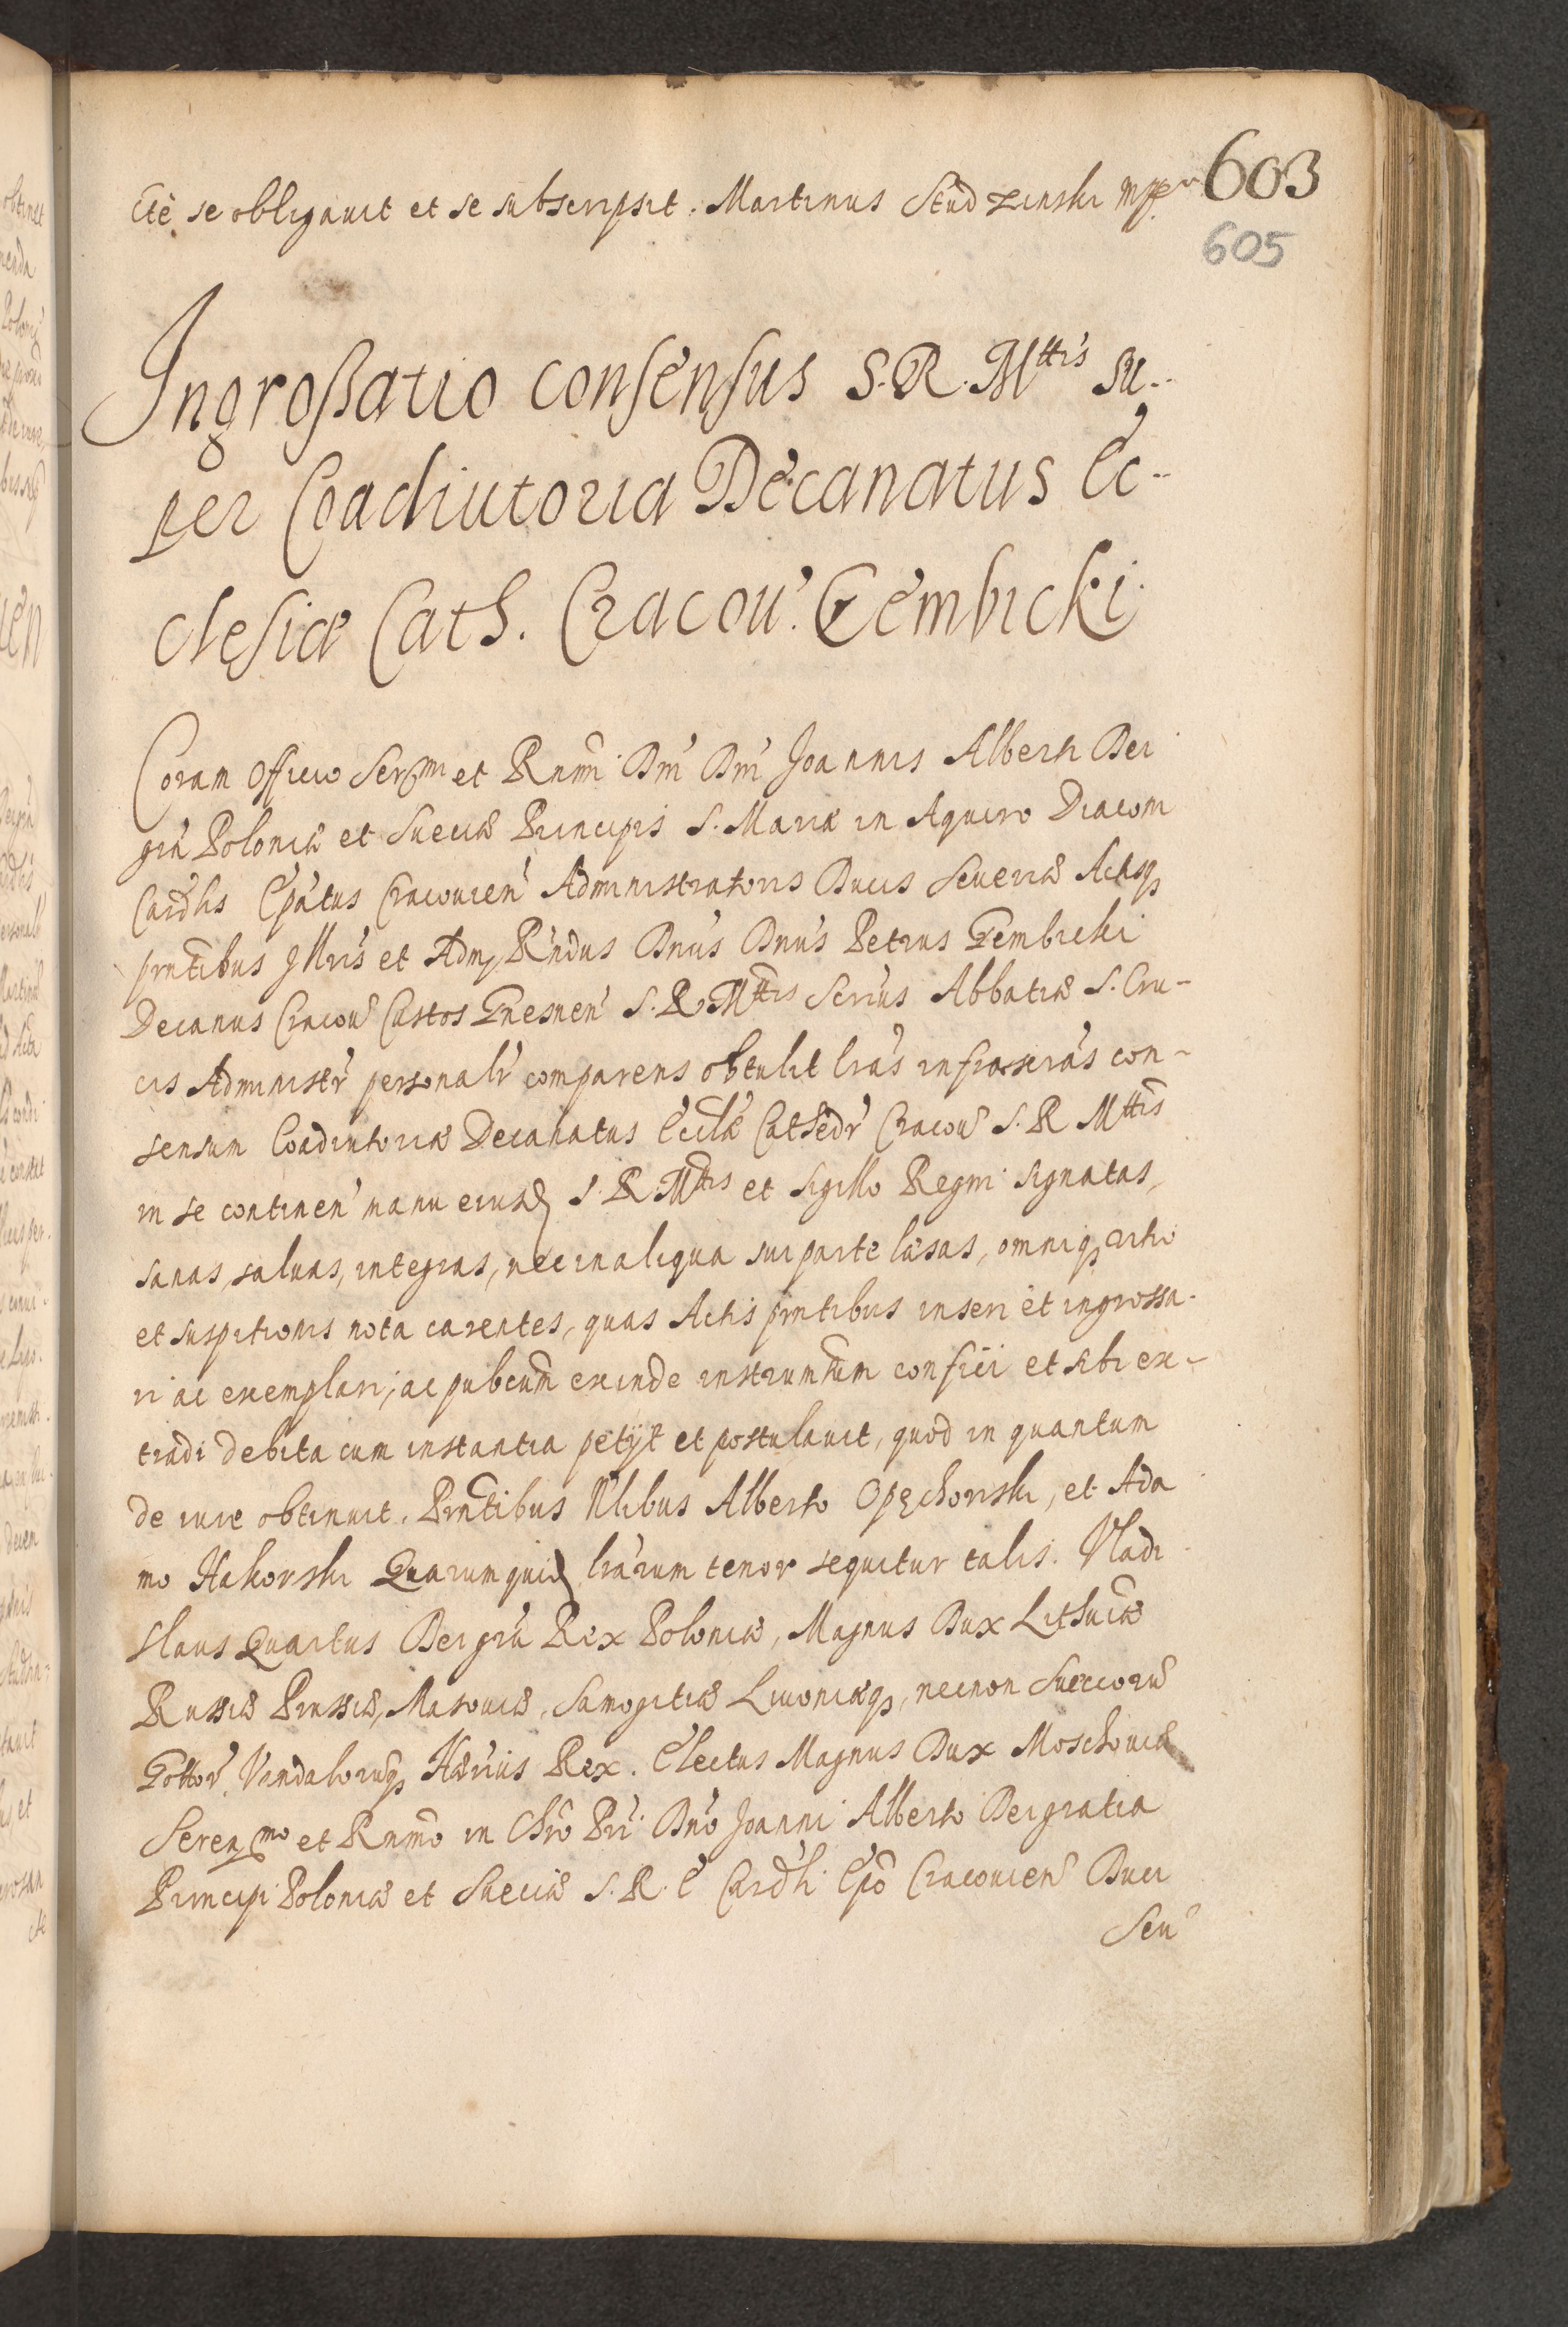 Etc se obligauit et se subscripsit. Martinus Studzinski mp 603
605
Ingroßatio consensus S. R. Mttis su-
per Coadiutoria Decanatus Ec-
clesiæ Cath. Cracou. Gembicki
Coram Officio Sermi et Rnmi Dni Dni Joannis Alberti Dei
gra Poloniæ et Sueciæ Principis S. Mariæ in Aquiro Diaconi
Cardlis Epatus Cracouien Administratoris Ducis Seueriæ Actisq
prntibus Jllris et Adm Rndus Dnus Dnus Petrus Gembicki
Decanus Cracou Custos Gnesnen S. R. Mttis Scrius Abbatiæ S. Cru-
cis Administr personalr comparens obtulit lras infrascras con-
sensum Coadiutoriæ Decanatus Eccliæ Cathedr Cracou S. R Mttis
in se continen manu eiusd S. R. Mttis et sigillo Regni signatas,
sanas, saluas, integras, nec in aliqua sui parte læsas, omniq vitio
et suspitionis nota carentes, quas Actis prntibus inseri et ingrossa-
ri ac exemplari, ac pubcum exinde instrumtum confici et sibi ex-
tradi debita cum instantia petijt et postulauit, quod in quantum
de iure obtinuit. Prntibus Nlibus Alberto Opęchowski, et Ada
mo Hakowski Quarumquid lrarum tenor sequitur talis. Vladi
slaus Quartus Dei gra Rex Poloniæ, Magnus Dux Lithuiæ
Russiæ Prussiæ, Masouiæ, Samogitiæ Liuoniæq, necnon Suecoru
Gottor, Vandaloruq Hærius Rex. Electus Magnus Dux Moschouiæ
Serenmo et Rnmo in Chro Pri Dno Joanni Alberto Dei gratia
Principi Poloniæ et Sueciæ S. R. E Cardli Epo Cracouien Duci
Seu